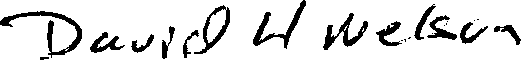 David W Nelson